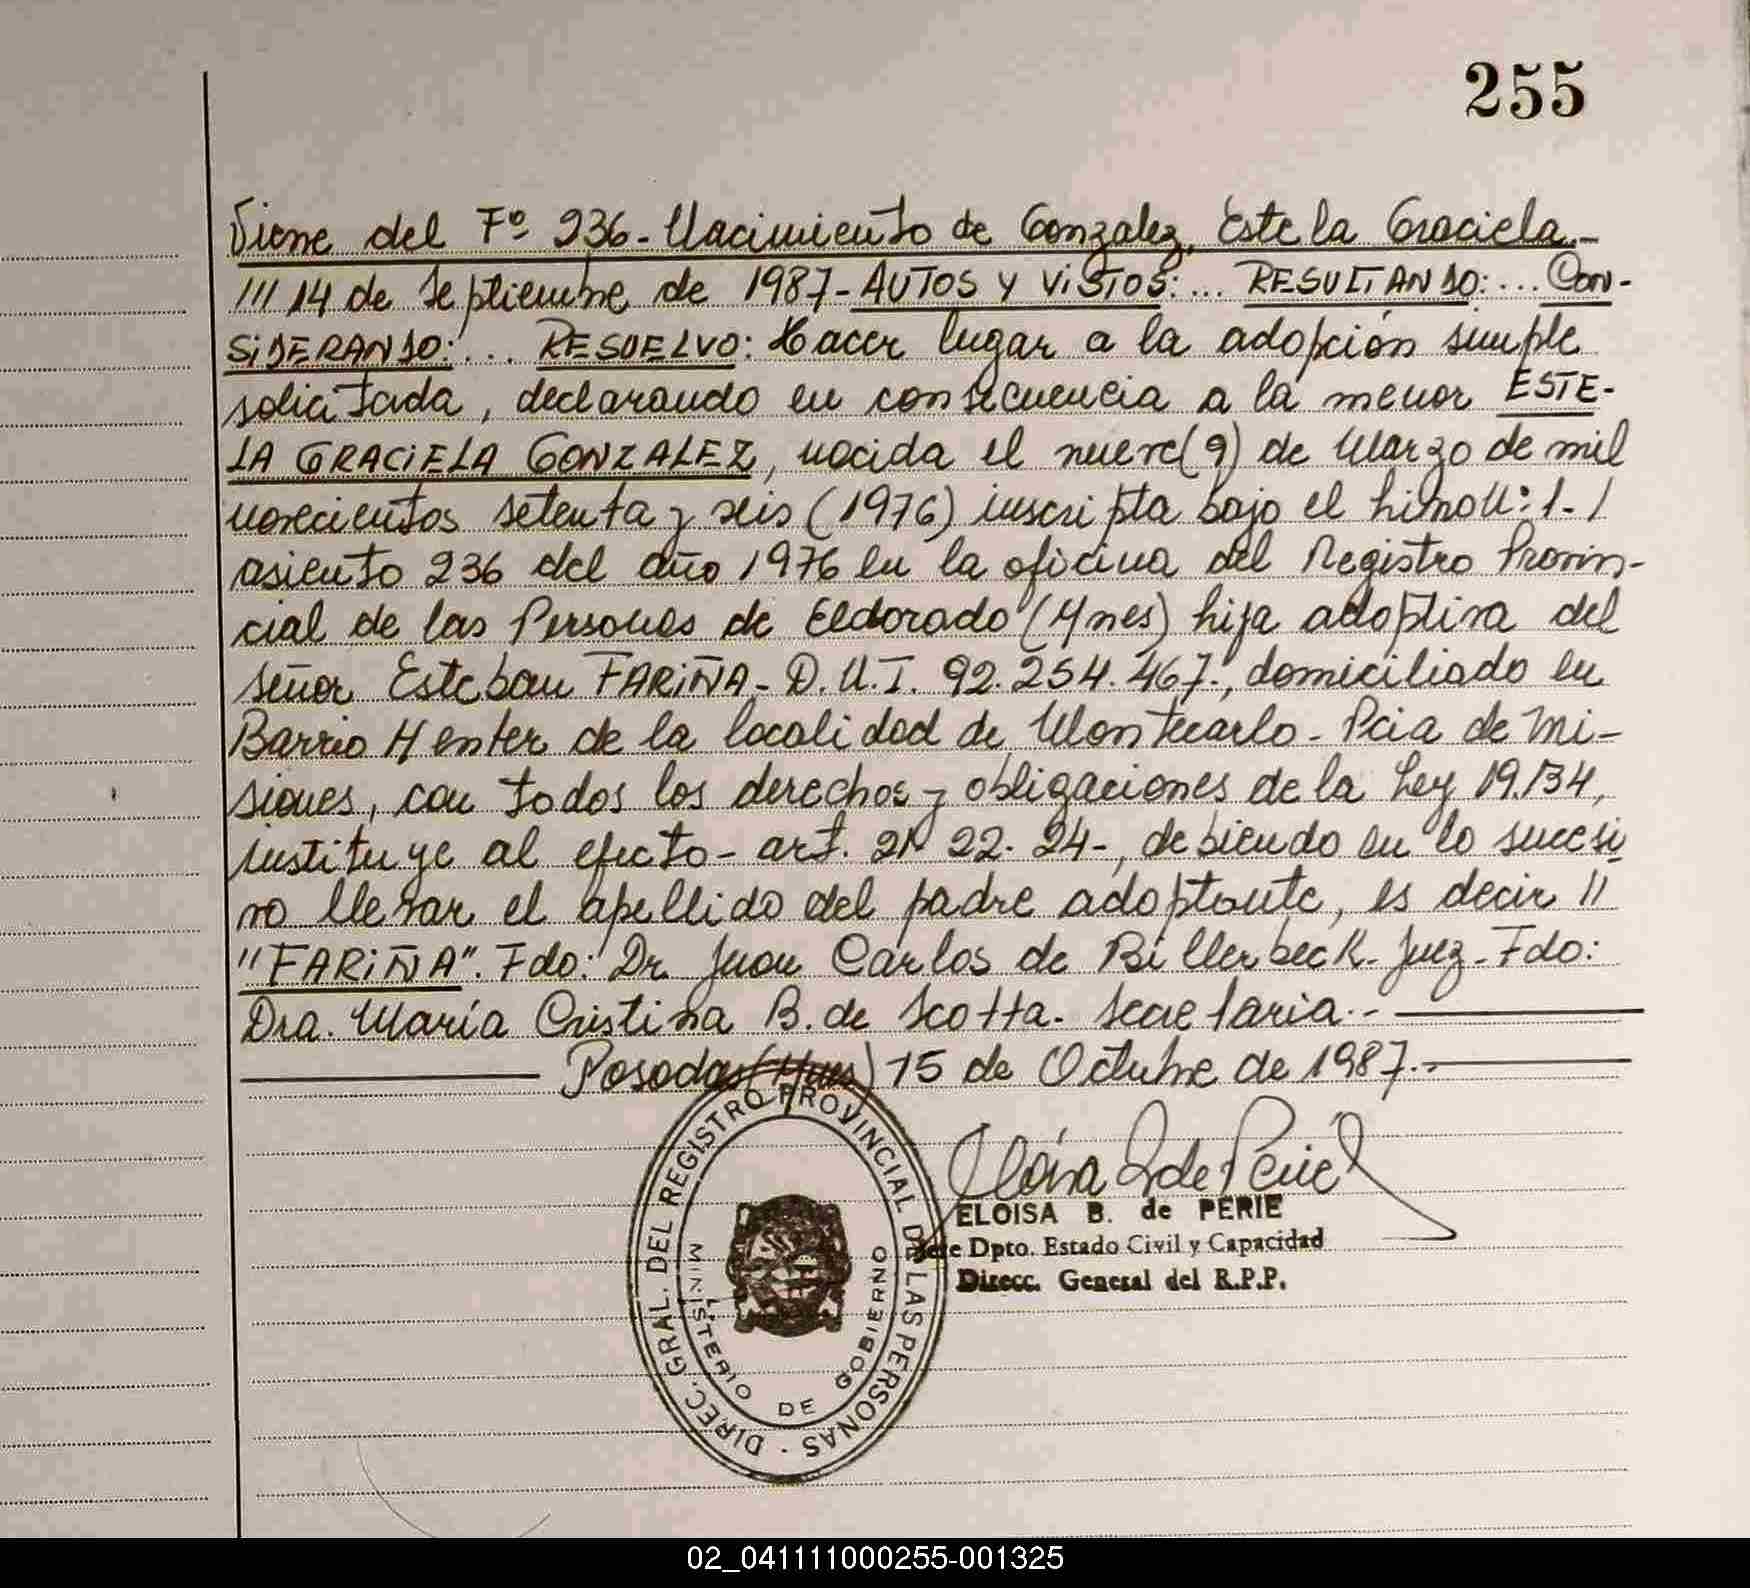 255
Viene del Fº 236- Nacimiento de Gonzalez, Estela Graciela.-
/// 14 de Septiembre de 1987- AUTOS Y VISTOS:... RESULTANDO:... CON-
SIDERANDO:... RESUELVO: Hacer lugar a la adopción simple
solicitada, declarando en consecuencia a la menor ESTE-
LA GRACIELA GONZALEZ, nacida el nueve (9) de Marzo de mil
novecientos setenta y seis (1976) inscripta bajo el 1-/
asiento 236 del año 1976 en la oficina del Registro Provin-
cial de las Personas de Eldorado (Mnes) hija adoptiva del
señor Esteban FARIÑA- D.N.I. 92.254.467., domiciliado en
Barrio Henter de la localidad de Montecarlo- Pcia de Mi-
siones, con todos los derechos y obligaciones de la Ley 19.134,
instituye al efecto- art. 21 22. 24-, debiendo en lo sucesi
vo llevar el apellido del padre adoptante, es decir //
"FARIÑA". Fdo: Dr. Juan Carlos de Billerbeck- Juez- Fdo:
Dra. María Cristina B. de Scotta- Secretaria.-
Posadas (Mnes) 15 de Octubre de 1987.-
DIREC. GRAL. DEL REGISTRO PROVINCIAL DE LAS PERSONAS
MINISTERIO DE GOBIERNO
Eloisa B de Perié
ELOISA B. de PERIE
Jefe Dpto. Estado Civil y Capacidad
Direcc. General del R.P.P.
02_041111000255-001325